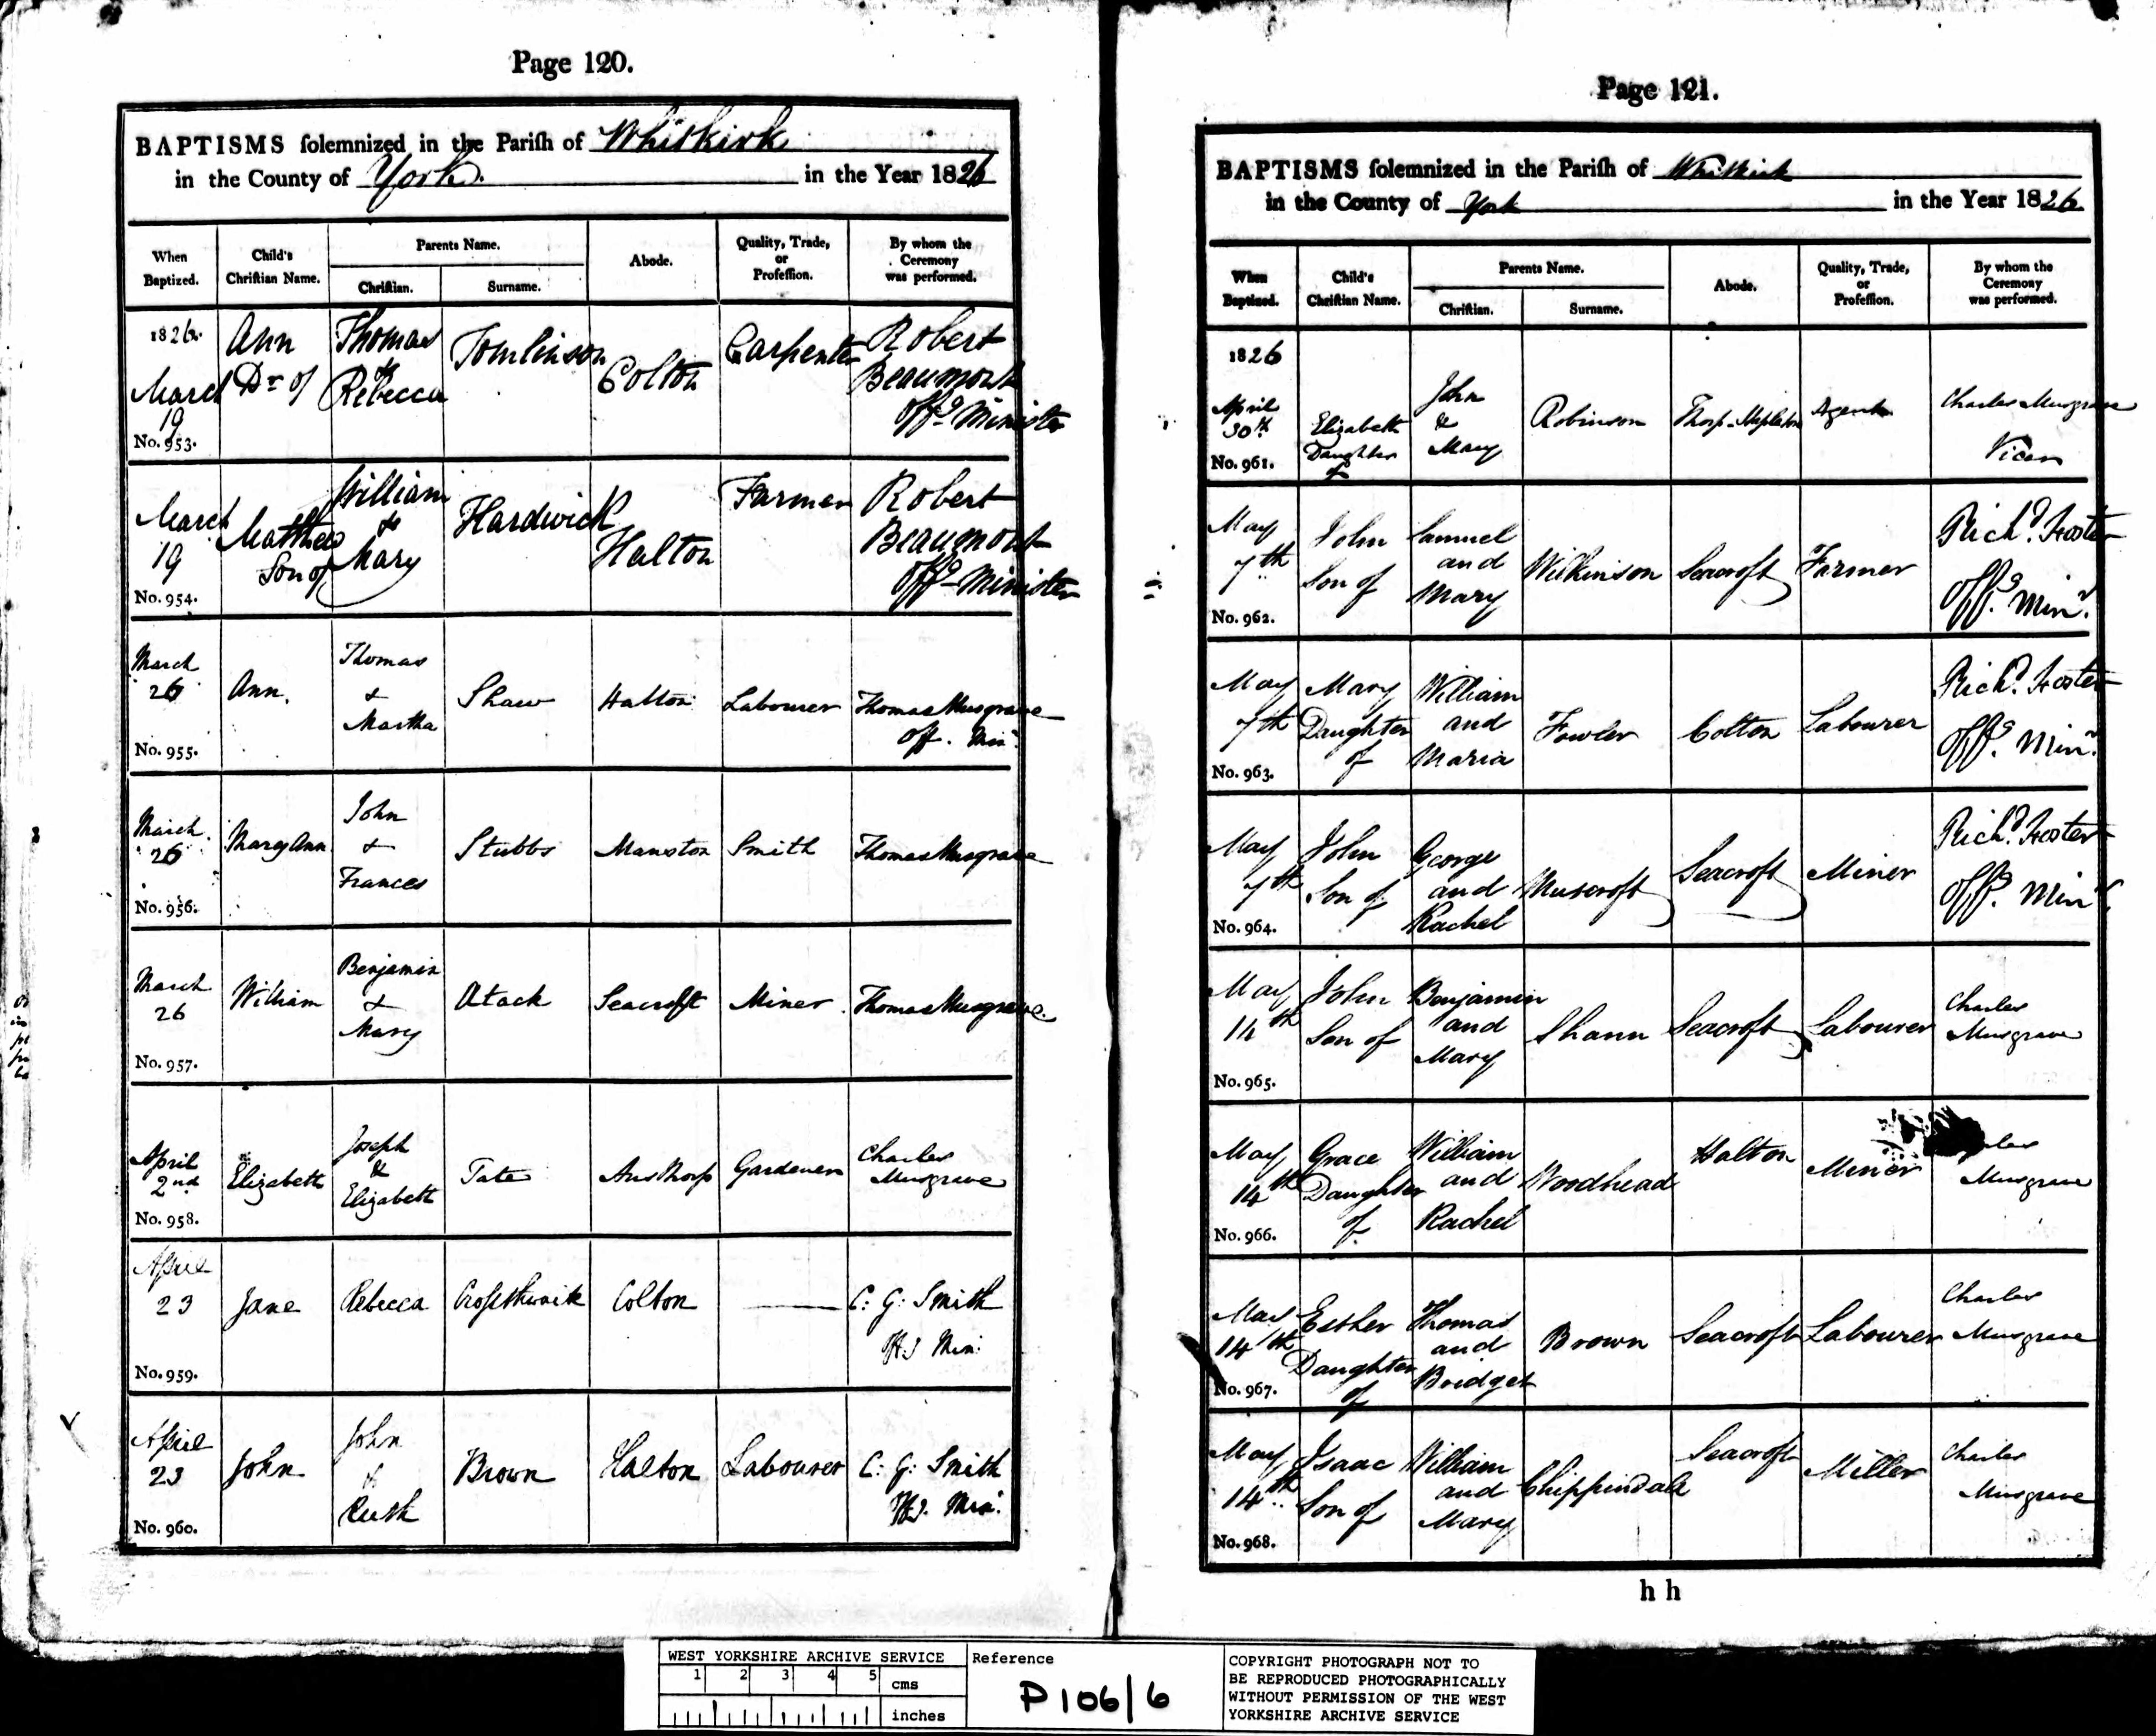 Page 120.
BAPTISMS ſolemnized in the Pariſh of Whitkirk
in the County of York. in the Year 1826
When Baptized.
Child's Chriſtian Name.
Parents Name.
Chriſtian.
Surname.
Abode.
Quality, Trade, or Profeſſion.
By whom the Ceremony was performed.
1826.
March 19
No. 953.
Ann Dr. of
Thomas & Rebecca
Tomlinson
Colton
Carpenter
Robert Beaumont Offg Minister
March 19
No. 954.
Matthew Son of
William & Mary
Hardwick
Halton
Farmer
Robert Beaumont Offg Minister
March 26
No. 955.
Ann.
Thomas & Martha
Shaw
Halton
Labourer
Thomas Musgrave Off. Minr.
March 26
No. 956.
Mary Ann
John & Frances
Stubbs
Manston
Smith
Thomas Musgrave
March 26
No. 957.
William
Benjamin & Mary
Atack
Seacroft
Miner
Thomas Musgrave.
April 2nd
No. 958.
Elizabeth
Joseph & Elizabeth
Tate
Austhorp
Gardener
Charles Musgrave
April 23
No. 959.
Jane
Rebecca
Croſsthwaite
Colton
C: G: Smith
Min:
April 23
No. 960.
John
John & Ruth
Brown
Halton
Labourer
C: G: Smith
Min:
Page 121.
BAPTISMS ſolemnized in the Pariſh of Whitkirk
in the County of York in the Year 1826
When Baptized.
Child's Chriſtian Name.
Parents Name.
Chriſtian.
Surname.
Abode.
Quality, Trade, or Profeſſion.
By whom the Ceremony was performed.
1826
April 30th.
No. 961.
Elizabeth Daughter of
John & Mary
Robinson
Thorp
Agent
Charles Musgrave Vicar
May 7th
No. 962.
John Son of
Samuel and Mary
Wilkinson
Seacroft
Farmer
Richd. Foster Offg. Minr.
May 7th
No. 963.
Mary Daughter of
William and Maria
Fowler
Colton
Labourer
Richd. Foster Offg. Minr.
May 7th
No. 964.
John Son of
George and Rachel
Muscroft
Seacroft
Miner
Richd. Foster Offg. Minr.
May 14th
No. 965.
John Son of
Benjamin and Mary
Shann
Seacroft
Labourer
Charles Musgrave
May 14th
No. 966.
Grace Daughter of
William and Rachel
Woodhead
Halton
Miner
Musgrave
May 14th
No. 967.
Esther Daughter of
Thomas and Bridget
Brown
Seacroft
Labourer
Charles Musgrave
May 14th
No. 968.
Isaac Son of
William and Mary
Chippindale
Seacroft
Miller
Charles Musgrave
h h
WEST YORKSHIRE ARCHIVE SERVICE
1 2 3 4 5 cms
inches
Reference
P106/6
COPYRIGHT PHOTOGRAPH NOT TO
BE REPRODUCED PHOTOGRAPHICALLY
WITHOUT PERMISSION OF THE WEST
YORKSHIRE ARCHIVE SERVICE